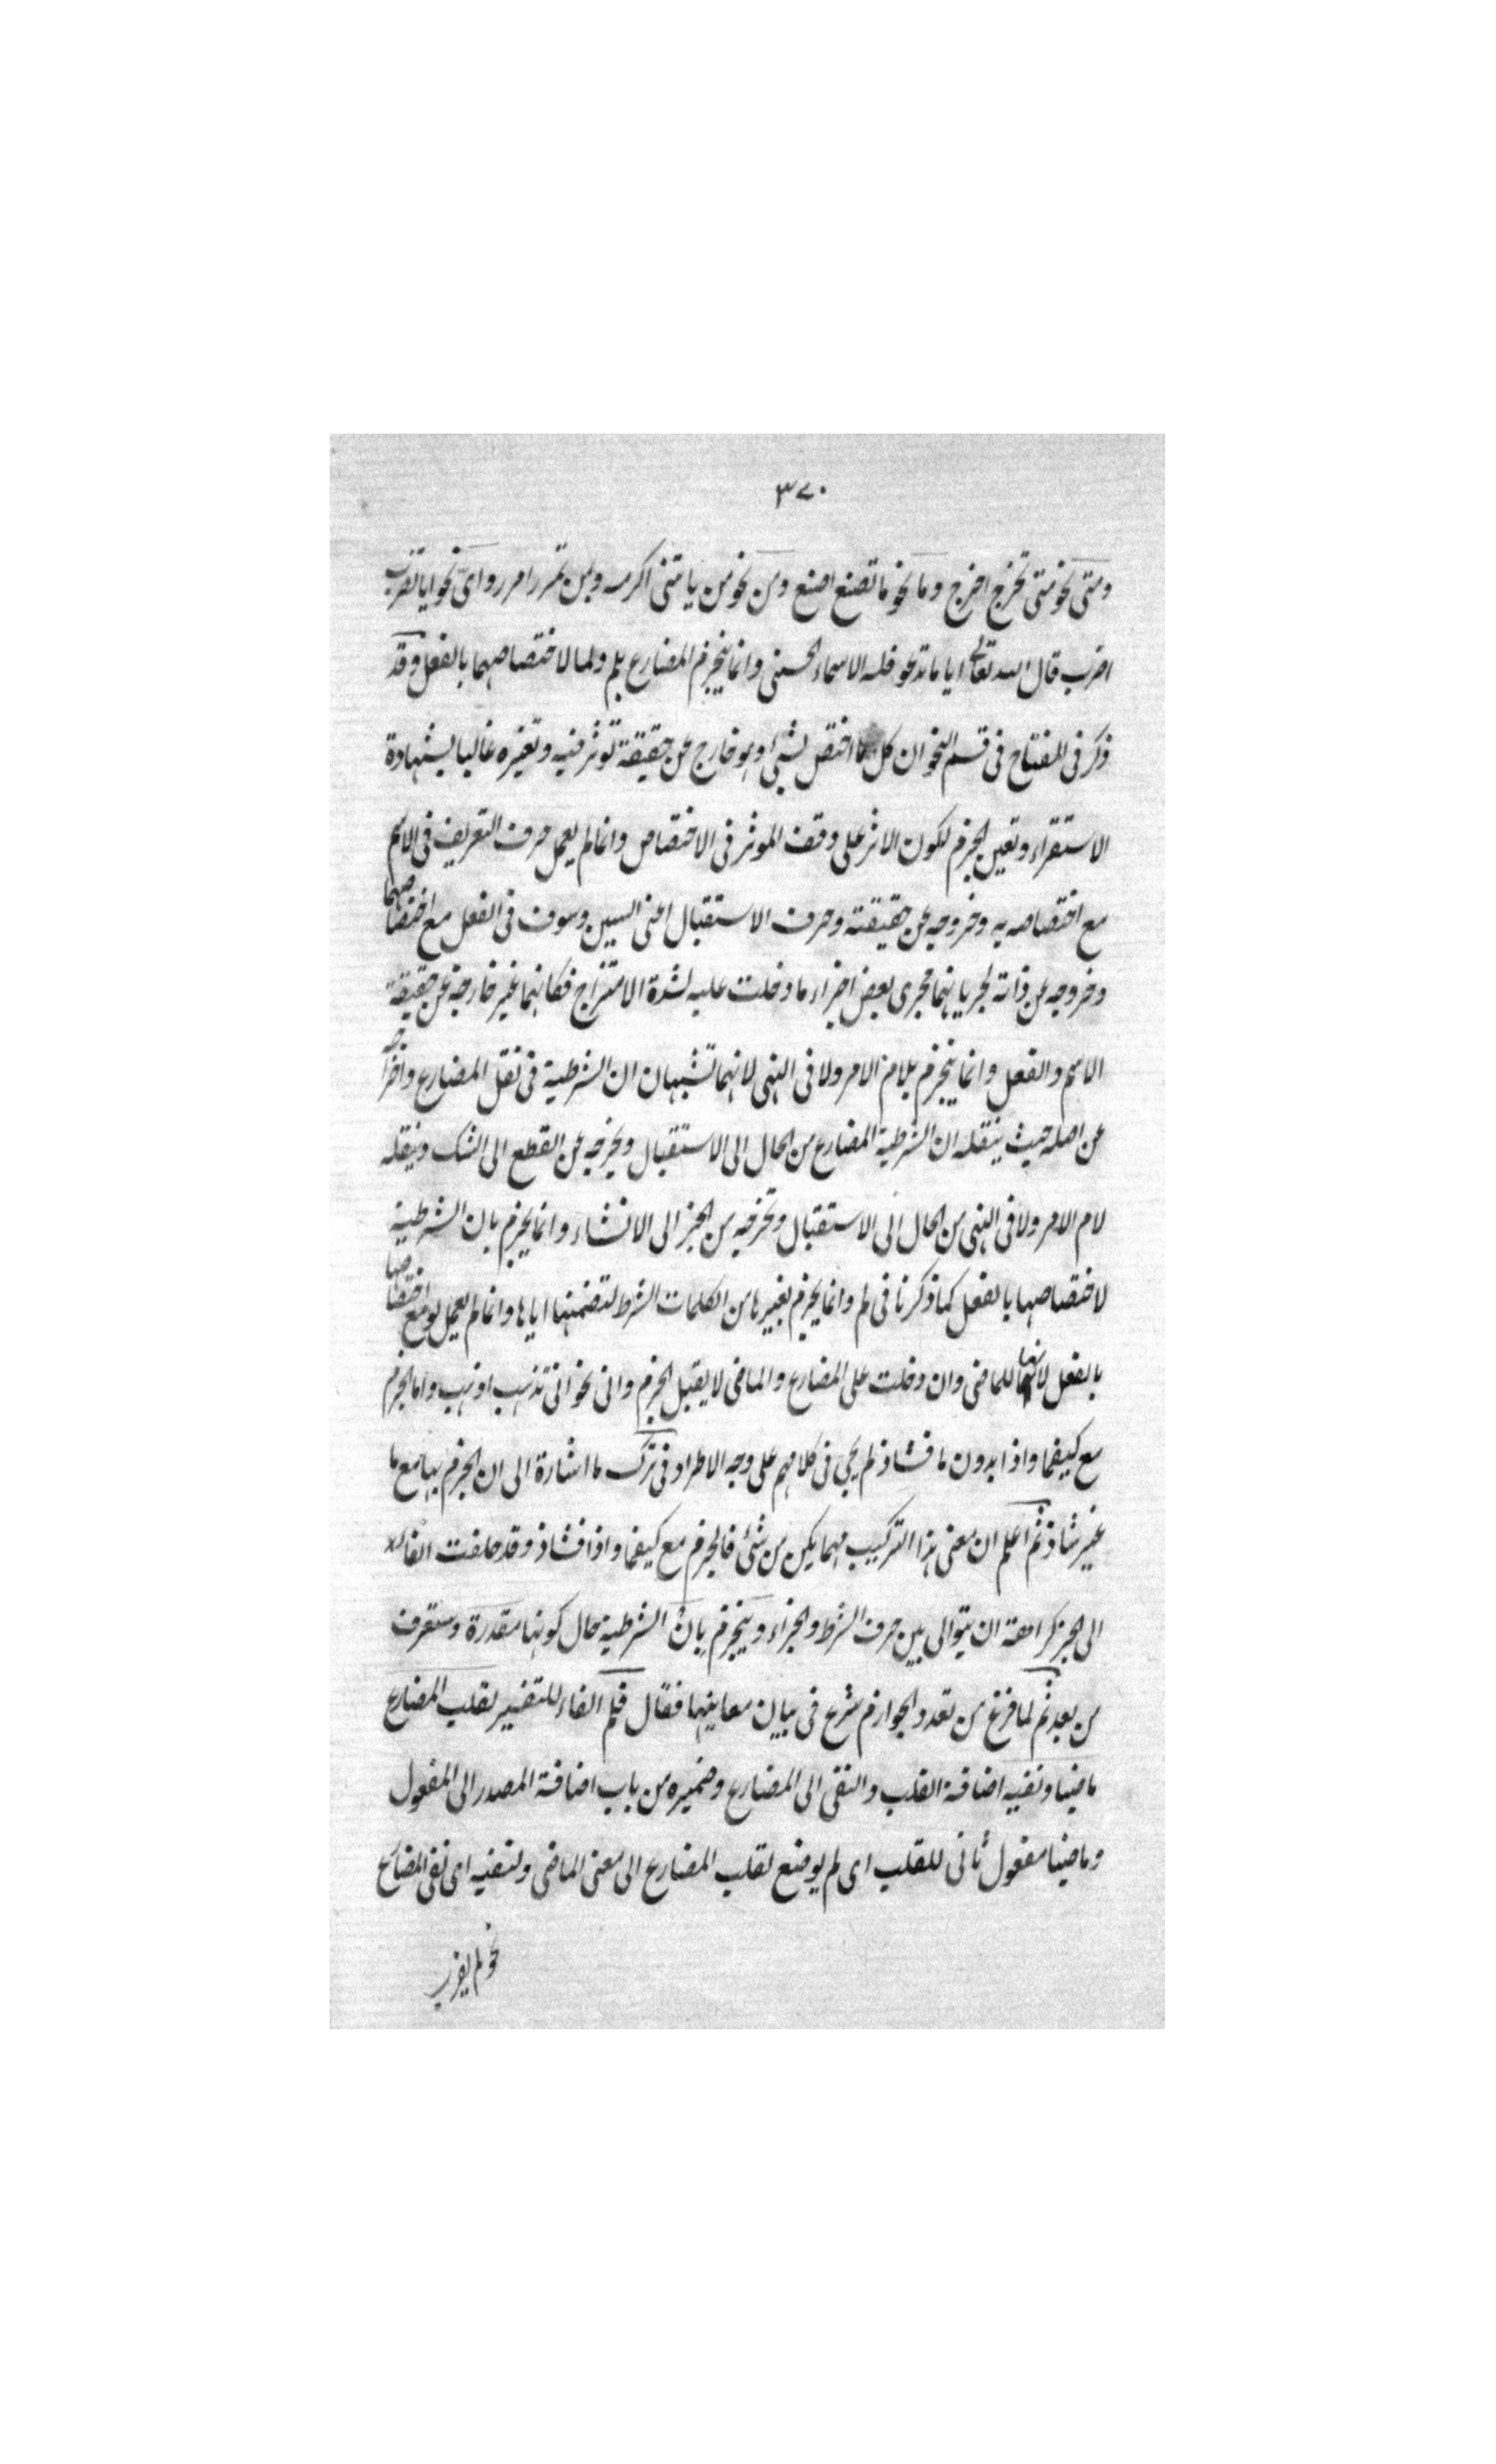 ٣٧٠
ومتى نحو متى تخرج اخرج وما نحو ما تصنع اصنع ومن نحو من ياتنى اكرمه وبمن تمرر امرر واى نحو ايا تضرب
اضرب قال الله تعالى ايا ما تدعو فله الاسماء الحسنى وانما ينجزم المضارع بلم ولما لاختصاصهما بالفعل وقد
ذكر فى المفتاح فى قسم النحو ان كل ما اختص بشئ وهو خارج عن حقيقته توثر فيه وتغيره غالبا بشهادة
الاستقراء وتعين الجزم لكون الاثر على وفق الموثر فى الاختصاص وانما لم يعمل حرف التعريف فى الاسم
مع اختصاصه به وخروجه عن حقيقته وحرف الاستقبال اعنى السين وسوف فى الفعل مع اختصاصهما
وخروجه عن ذاته لجريانهما مجرى بعض اجزاء ما دخلت عليه لشدة الامتزاج فكانهما غير خارجة عن حقيقة
الاسم والفعل وانما ينجزم بلام الامر ولا فى النهى لانهما تشبهان ان الشرطية فى نقل المضارع واخراجه
عن اصله حيث ينقله ان الشرطية المضارع من الحال الى الاستقبال ويخرجه عن القطع الى الشك وينقله
لام الامر ولا فى النهى من الحال الى الاستقبال وتخرجه من الخبر الى الانشاء وانما يجزم بان الشرطية
لاختصاصها بالفعل كما ذكرنا فى لم وانما يجزم بغيرها من الكلمات الشرط لتضمنها اياها وانما لم يعمل لو مع اختصاصها
بالفعل لانها للماضى وان دخلت على المضارع والماضى لا يقبل الجزم وانى نحو انى تذهب اذهب واما الجزم
مع كيفما واذا بدون ما فشاذ لم يجئ فى كلامهم على وجه الاطراد فى ترك ما اشارة الى ان الجزم بها مع ما
غير شاذ ثم اعلم ان معنى هذا التركيب مهما يكن من شئ فالجزم مع كيفما واذا فشاذ وقد حلفت الفاء
الى الخبر كراهة ان يتوالى بين حرف الشرط والجزاء وينجزم بان الشرطية حال كونها مقدرة وستعرف
من بعد ثم لما فرغ من تعدد الجوازم شرع فى بيان معانيها فقال فلم الفاء للتفسير لقلب المضارع
ماضيا ونفيه اضافة القلب والنفى الى المضارع وضميره من باب اضافة المصدر الى المفعول
وماضيا مفعول ثانى للقلب اى لم يوضع لقلب المضارع الى معنى الماضى ولنفيه اى نفى المضارع
نحو لم يضرب